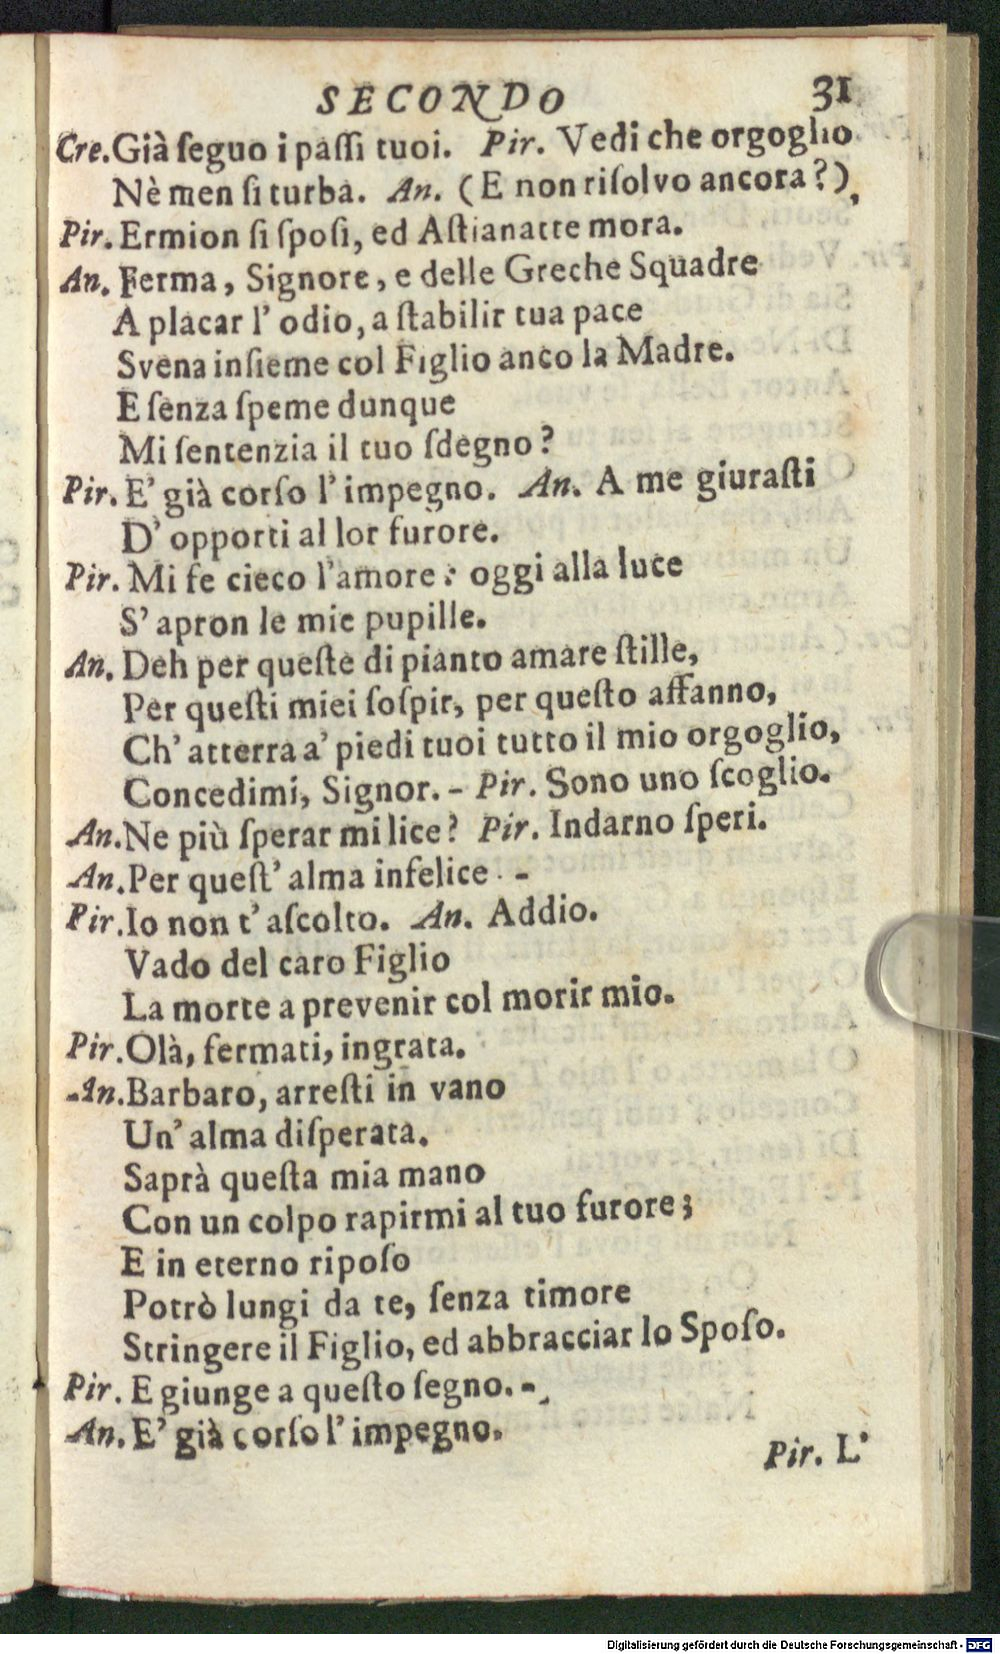 SECONDO 31
Cre. Già ſeguo i paſſi tuoi. Pir. Vedi che orgoglio
Nè men ſi turba. An. (E non riſolvo ancora?)
Pir. Ermion ſi ſpoſi, ed Aſtianatte mora.
An. Ferma, Signore, e delle Greche Squadre
A placar l' odio, a ſtabilir tua pace
Svena inſieme col Figlio anco la Madre.
E ſenza ſpeme dunque
Mi ſentenzia il tuo ſdegno?
Pir. E' già corſo l' impegno. An. A me giuraſti
D' opporti al lor furore.
Pir. Mi fe cieco l'amore: oggi alla luce
S' apron le mie pupille.
An. Deh per queſte di pianto amare ſtille,
Per queſti miei ſoſpir, per queſto affanno,
Ch' atterra a' piedi tuoi tutto il mio orgoglio,
Concedimi, Signor. - Pir. Sono uno ſcoglio.
An. Ne più ſperar mi lice? Pir. Indarno ſperi.
An. Per queſt' alma infelice -
Pir. Io non t' aſcolto. An. Addio.
Vado del caro Figlio
La morte a prevenir col morir mio.
Pir. Olà, fermati, ingrata.
An. Barbaro, arreſti in vano
Un' alma diſperata.
Saprà queſta mia mano
Con un colpo rapirmi al tuo furore;
E in eterno ripoſo
Potrò lungi da te, ſenza timore
Stringere il Figlio, ed abbracciar lo Spoſo.
Pir. E giunge a queſto ſegno. -
An. E' già corſo l' impegno.
Pir. L'
Digitalisierung gefördert durch die Deutsche Forschungsgemeinschaft - DFG